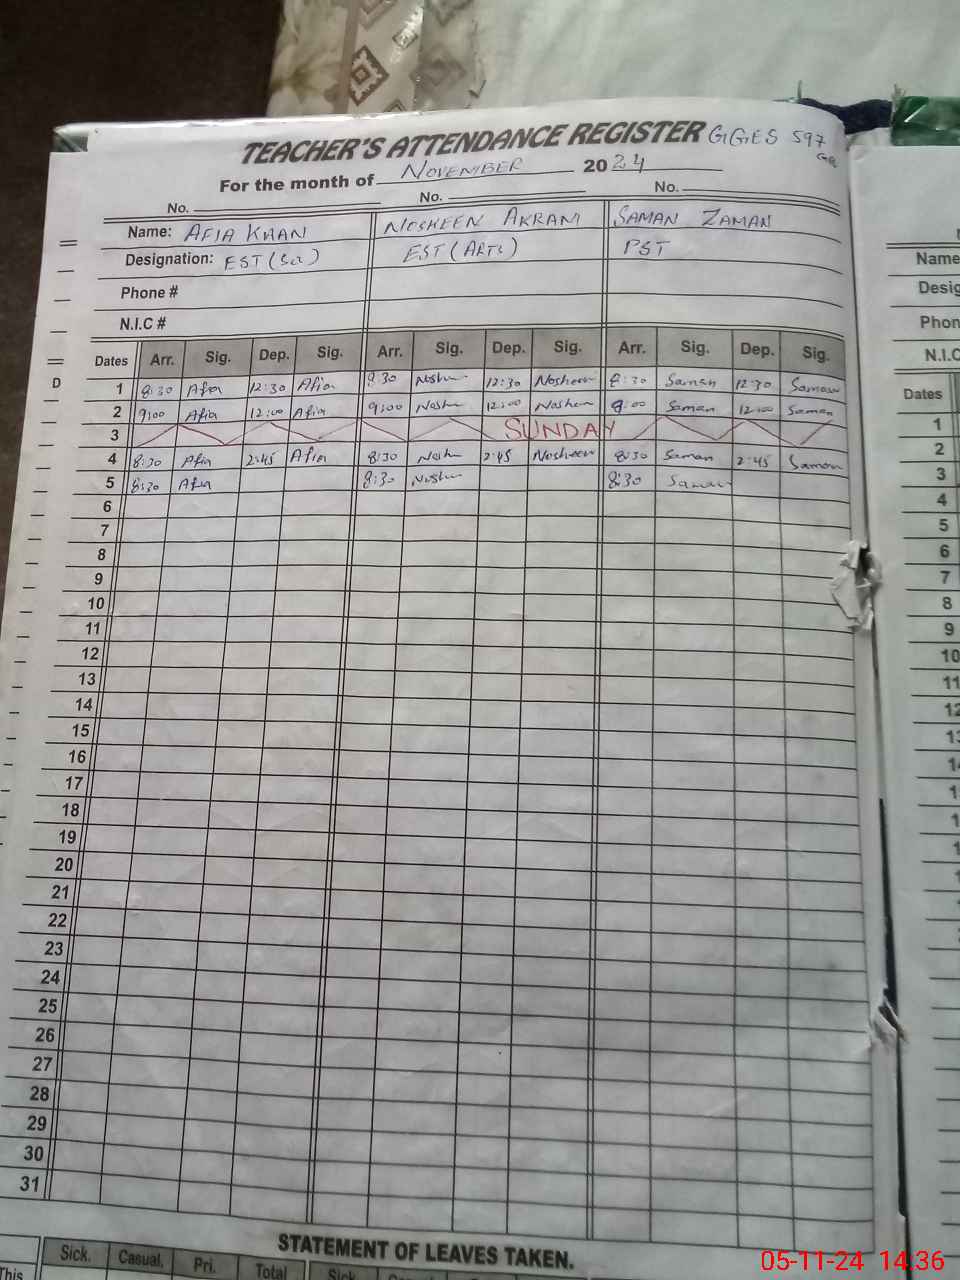 TEACHER'S ATTENDANCE REGISTER GGES 597 GB
For the month of NOVEMBER 2024
No. No. No.
Name: AFIA KHAN NOSHEEN AKRAM SAMAN ZAMAN
Designation: EST (Sci) EST (ARTS) PST
Phone #
N.I.C #
Dates Arr. Sig. Dep. Sig. Arr. Sig. Dep. Sig. Arr. Sig. Dep. Sig.
1 8:30 Afia 12:30 Afia 8:30 Noshe 12:30 Nosheen 8:30 Saman 12:30 Saman
2 9:00 Afia 12:00 Afia 9:00 Noshe 12:00 Noshen 9:00 Saman 12:00 Saman
3 SUNDAY
4 8:30 Afia 2:45 Afia 8:30 Noshe 2:45 Nosheen 8:30 Saman 2:45 Saman
5 8:30 Afia 8:30 Noshe 8:30 Saman
6
7
8
9
10
11
12
13
14
15
16
17
18
19
20
21
22
23
24
25
26
27
28
29
30
31
STATEMENT OF LEAVES TAKEN.
This Sick. Casual. Pri. Total Sick.
D
Name
Phon
N.I.C
Dates
1
2
3
4
5
6
7
8
9
10
11
12
05-11-24 14:36